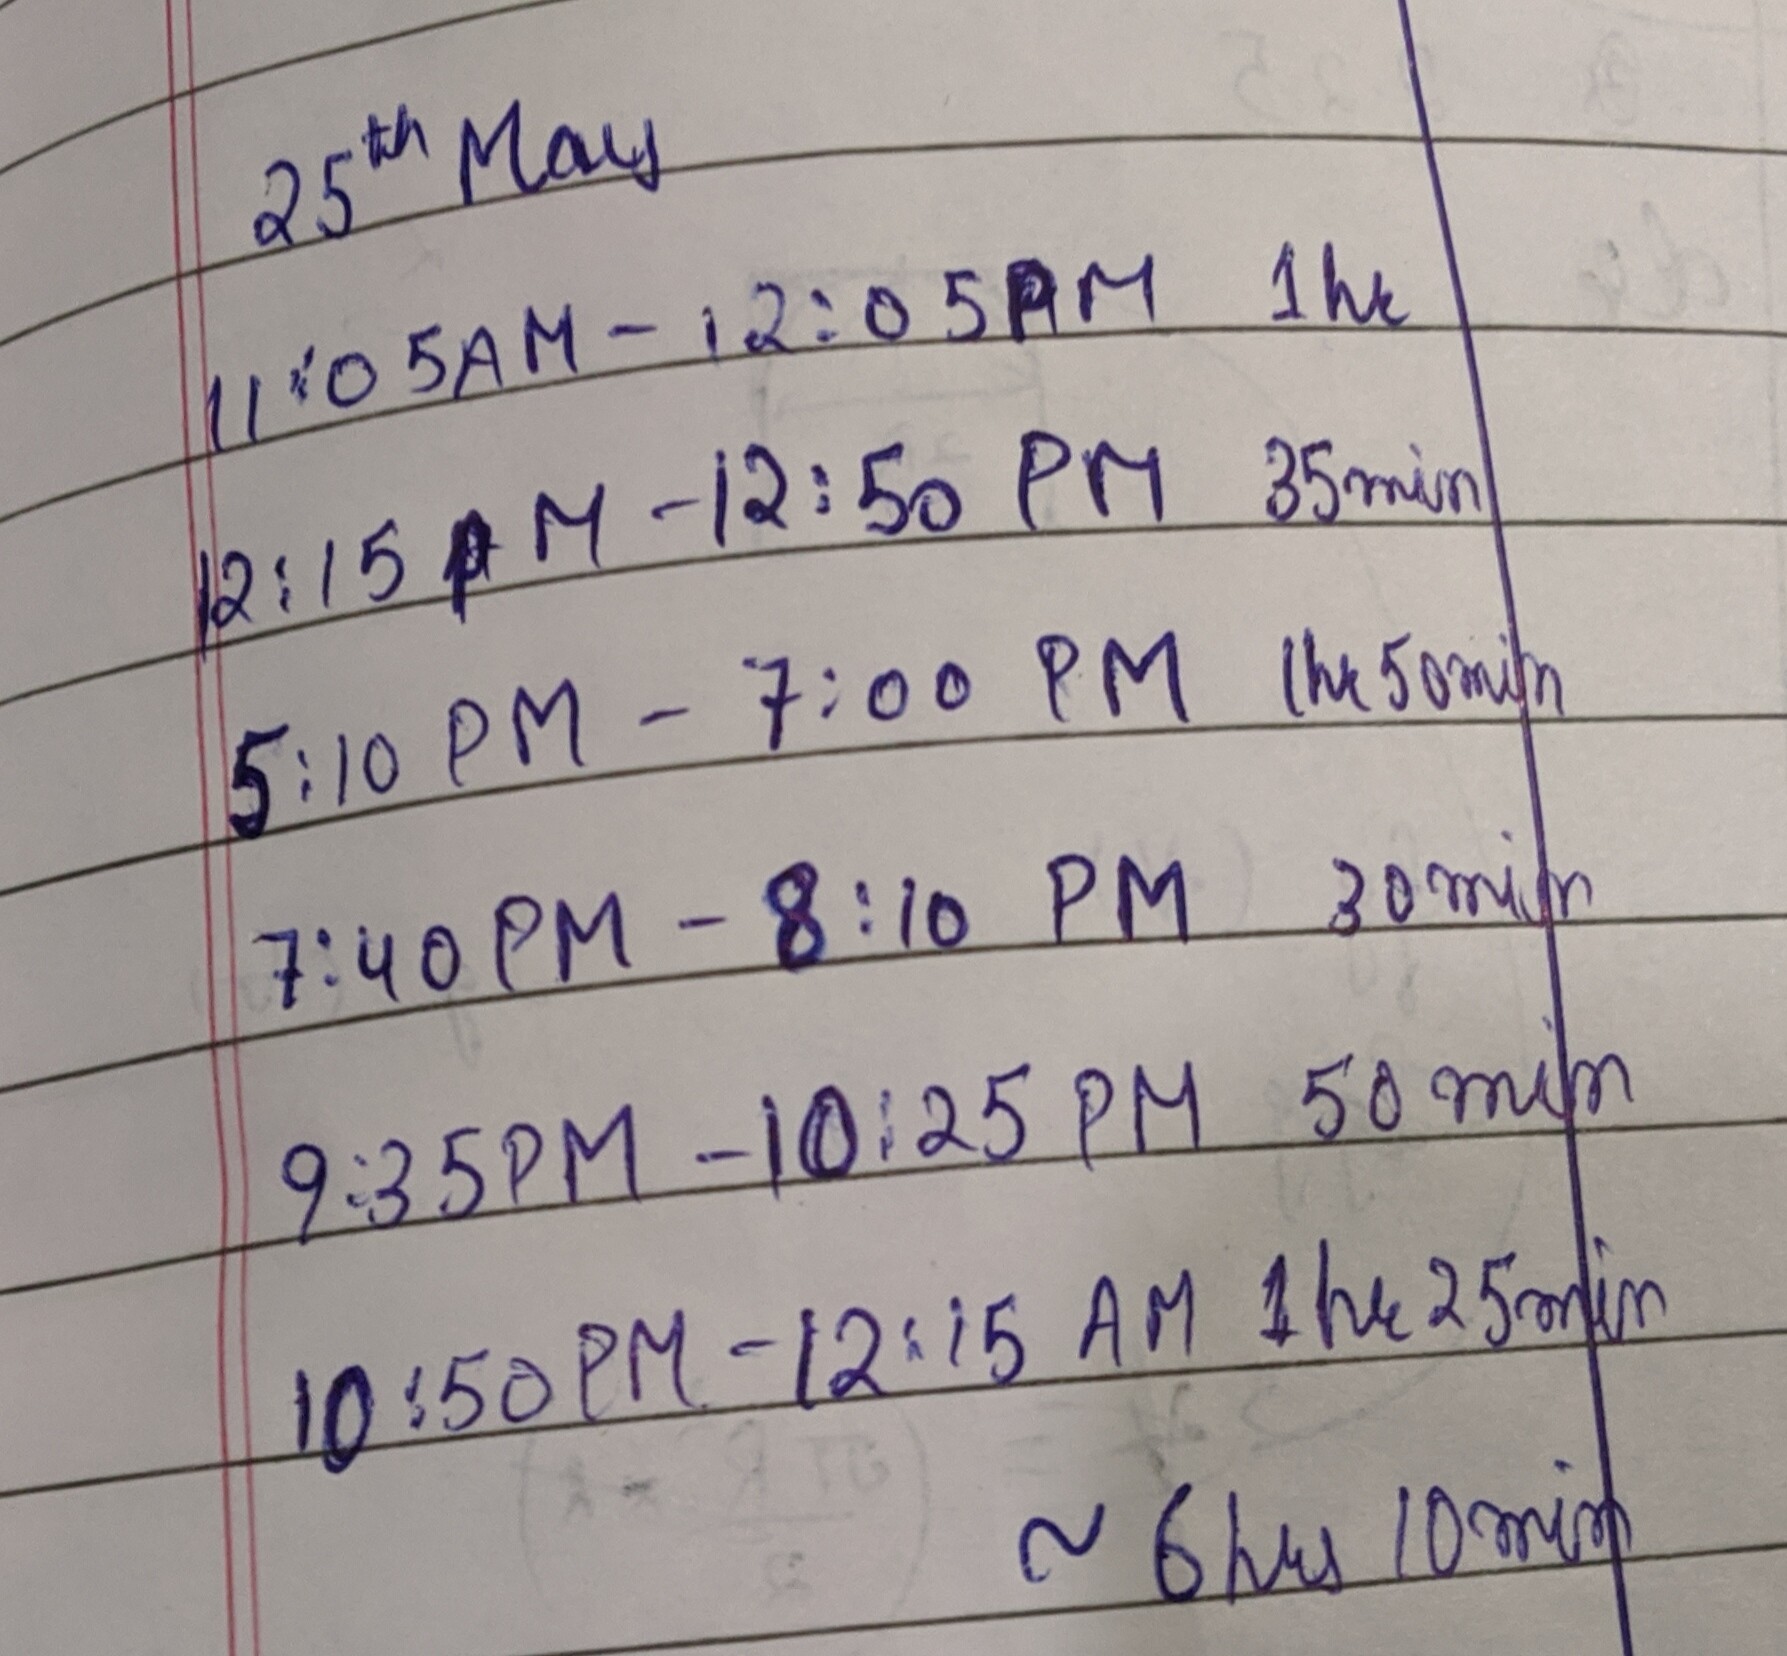 25th May
11:05AM - 12:05PM 1hr
12:15 PM - 12:50 PM 35min
5:10 PM - 7:00 PM 1hr 50min
7:40 PM - 8:10 PM 30min
9:35PM - 10:25 PM 50 min
10:50PM - 12:15 AM 1hr 25min
~ 6hrs 10min